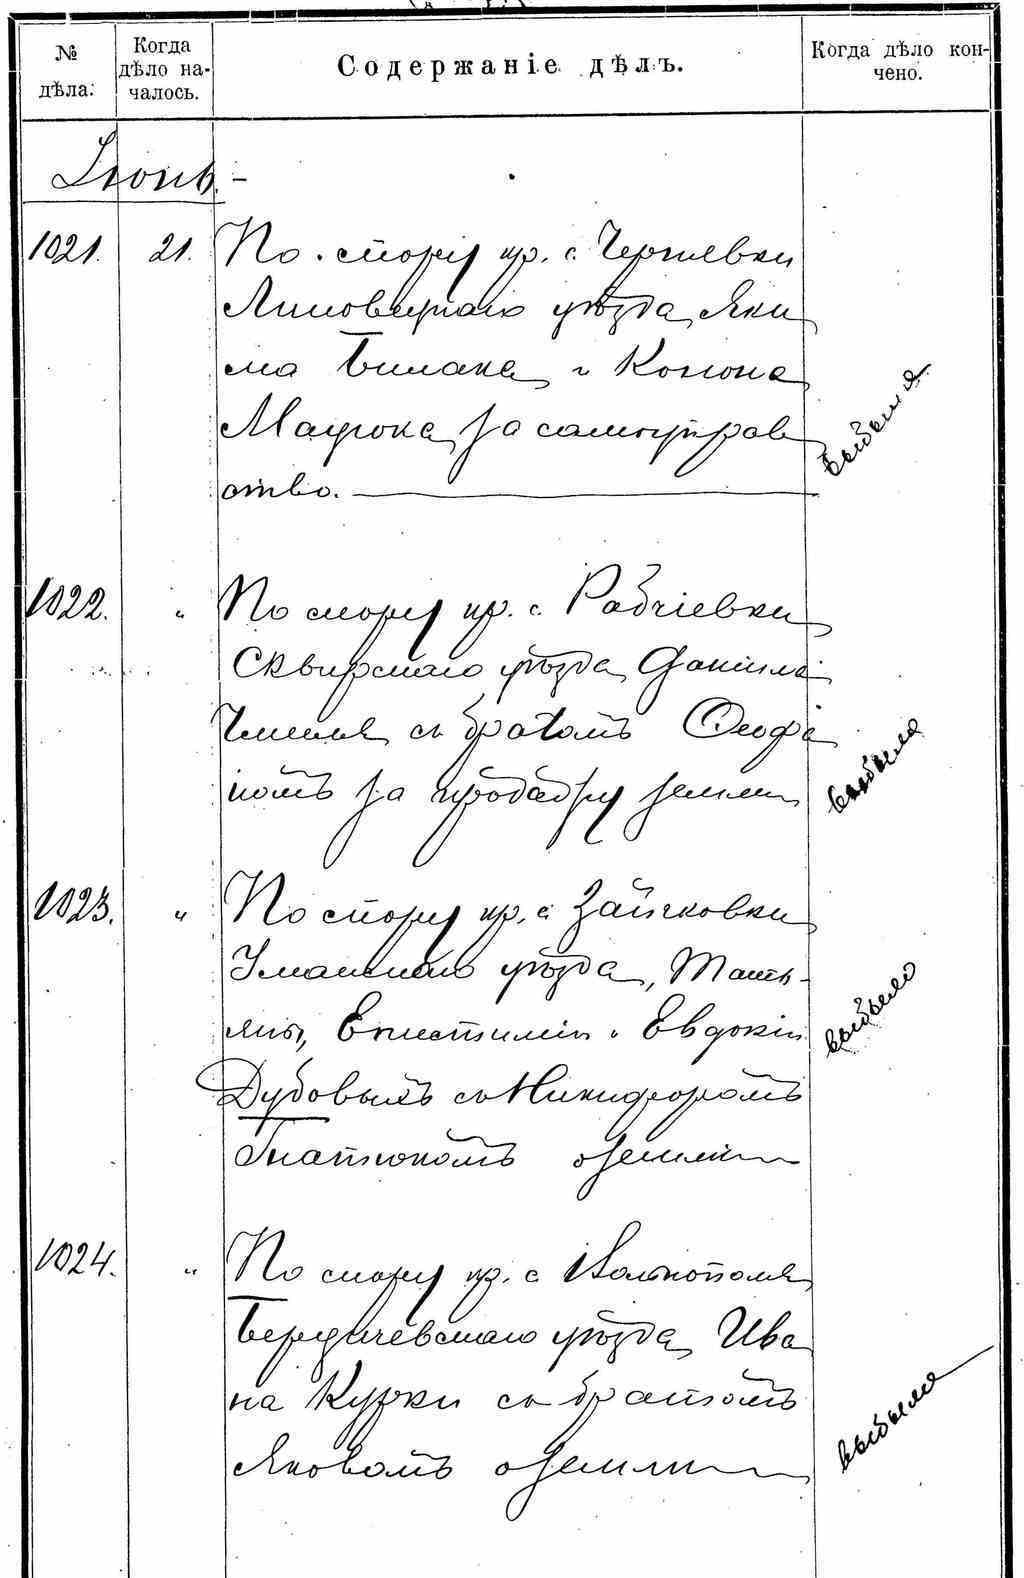 № дѣла.
Когда дѣло на-
чалось.
Содержаніе дѣлъ.
Когда дѣло кон-
чено.
Іюнь.-
1021. 21. По спору кр. с. Чернявки
Липовецкаго уѣзда Яки
ма Бимака и Конона
за самоуправ
ство.
выбыла
1022. " По спору кр. с.
Сквирскаго уѣзда Даніила
съ братомъ Феофа
номъ за продажу земли
выбыло
1023. " По спору кр. с. Зайчковки
Уманскаго уѣзда, Тать-
яны, Епистиміи и Евдокіи
Дубовыхъ съ Никифоромъ
Гнатюкомъ о землѣ
выбыло
1024. " По спору кр. с.
Бердичевскаго уѣзда Ива
на Курки съ братомъ
Яковомъ о землѣ
выбыло